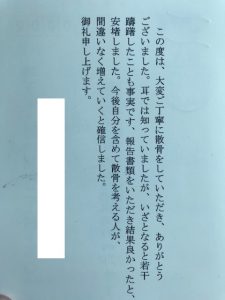 この度は、大変ご丁寧に散骨をしていただき、ありがとう
ございました。耳では知っていましたが、いざとなると若干
躊躇したことも事実です、報告書類をいただき結果良かったと、
安堵しました。今後自分を含めて散骨を考える人が、
間違いなく増えていくと確信しました。
御礼申し上げます。